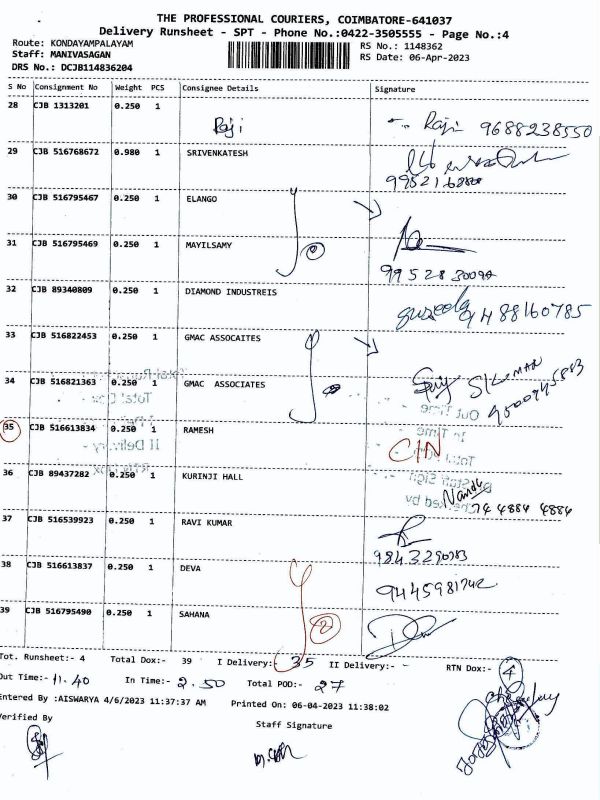 THE PROFESSIONAL COURIERS, COIMBATORE-641037
Delivery Runsheet - SPT - Phone No.:0422-3505555 - Page No.:4
Route: KONDAYAMPALAYAM
RS No.: 1148362
Staff: MANIVASAGAN
RS Date: 06-Apr-2023
DRS No.: DCJB114836204
S No Consignment No Weight PCS Consignee Details Signature
28 CJB 1313201 0.250 1 Raji Raji 9688238550
29 CJB 516768672 0.980 1 SRIVENKATESH
30 CJB 516795467 0.250 1 ELANGO
31 CJB 516795469 0.250 1 MAYILSAMY
32 CJB 89340809 0.250 1 DIAMOND INDUSTREIS 9488160785
33 CJB 516822453 0.250 1 GMAC ASSOCAITES
34 CJB 516821363 0.250 1 GMAC ASSOCIATES
35 CJB 516613834 0.250 1 RAMESH
36 CJB 89437282 0.250 1 KURINJI HALL
37 CJB 516539923 0.250 1 RAVI KUMAR
38 CJB 516613837 0.250 1 DEVA
39 CJB 516795490 0.250 1 SAHANA
2
Tot. Runsheet:- 4 Total Dox:- 39 I Delivery:- 35 II Delivery:- - RTN Dox:- 4
Out Time:- 11.40 In Time:- 2.50 Total POD:- 27
Entered By :AISWARYA 4/6/2023 11:37:37 AM Printed On: 06-04-2023 11:38:02
Verified By
Staff Signature